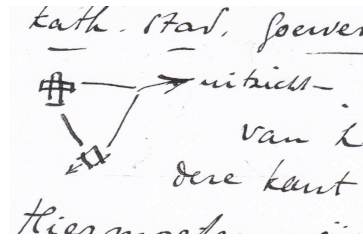 kath. stad. Goewer
uitzicht
van h
dere kant
Hiermede